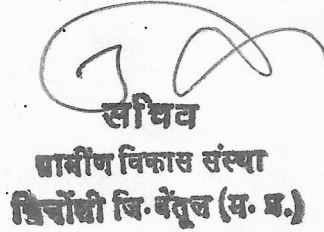 सचिव
ग्रामीण विकास संस्था
चिचोली जि. बेतूल (म. प्र.)